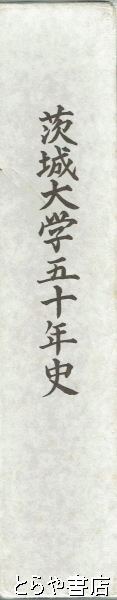 茨城大学五十年史
とらや書店